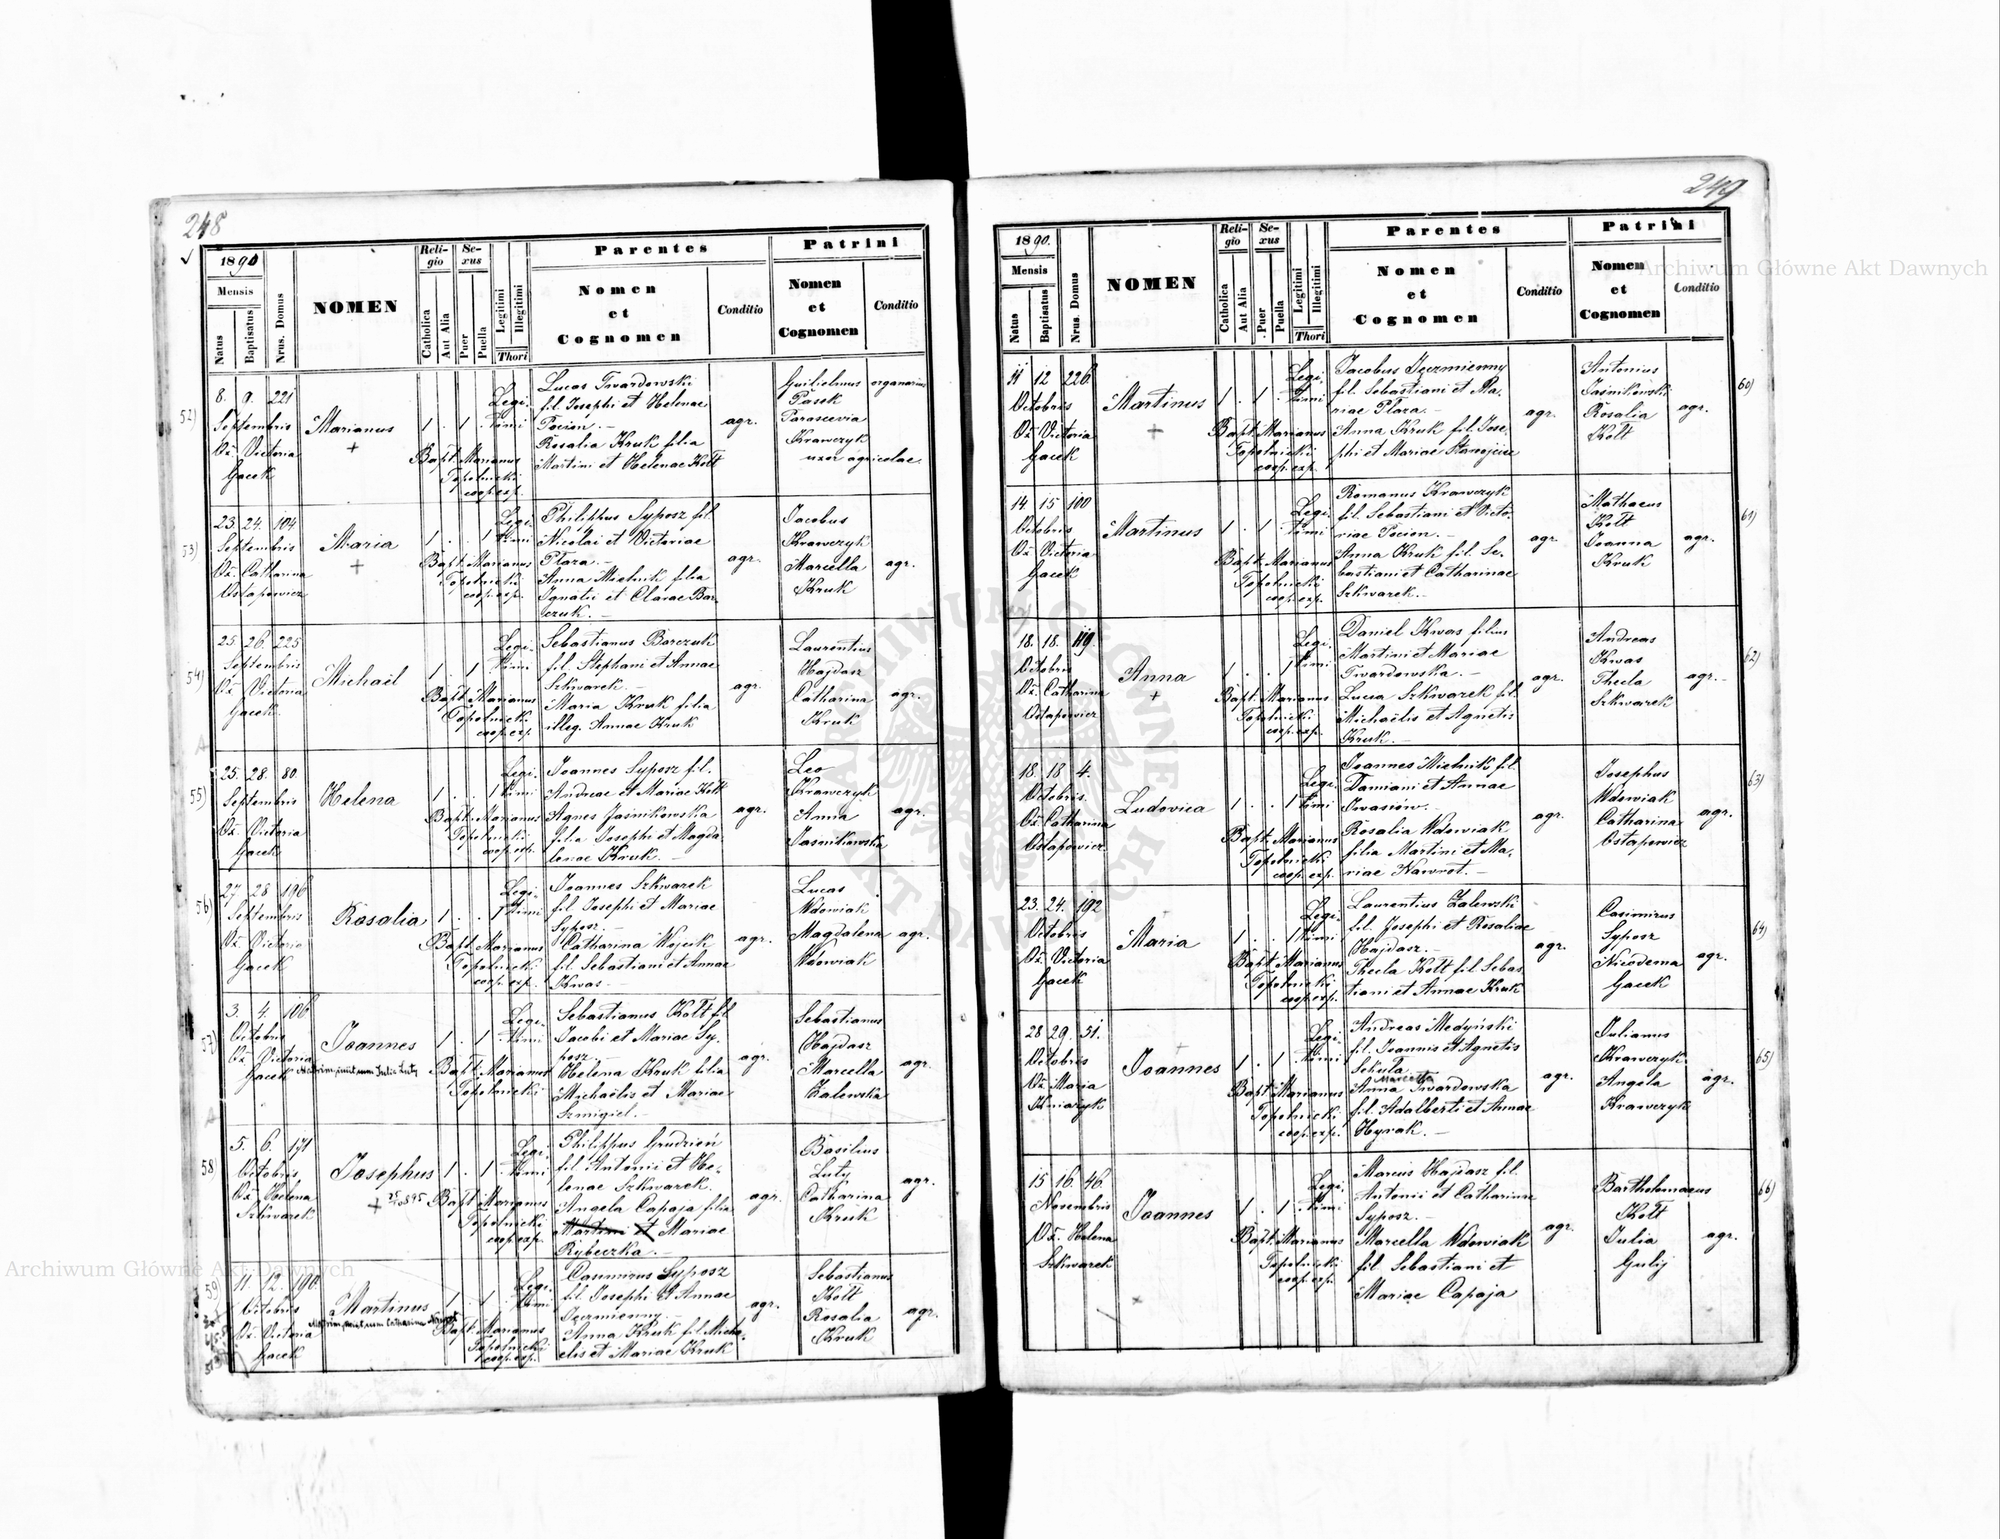 248
1890
Mensis
Natus
Baptisatus
Nrus. Domus
NOMEN
Reli-
gio
Catholica
Aut Alia
Se-
xus
Puer
Puella
Legitimi
Illegitimi
Thori
Parentes
Nomen
et
Cognomen
Conditio
Patrini
Nomen
et
Cognomen
Conditio
52)
8. 9. 221
Septembris
Ob. Victoria
Gacek
Marianus
+
1 . 1
Legi-
timi
Bapt. Marianus
Topolnicki
coop. exp.
Lucas Twardowski
fil. Josephi et Helenae
Pocion. –
Rosalia Kruk filia
Martini et Helenae Kołt
agr.
Guilielmus
Pasek
Parascevia
Krawczyk
uxor agricolae
organarius
53)
23. 24. 104
Septembris
Ob. Catharina
Ostapowicz
Maria
+
1 . . 1
Legi-
timi
Bapt. Marianus
Topolnicki
coop. exp.
Philippus Syposz fil.
Nicolai et Victoriae
Płaza. –
Anna Mielnik filia
Ignatii et Clarae Bar-
czuk. –
agr.
Jacobus
Krawczyk
Marcella
Kruk
agr.
54)
25. 26. 225
Septembris
Ob. Victoria
Gacek
Michaël
1 . 1
Legi-
timi
Bapt. Marianus
Topolnicki
coop. exp.
Sebastianus Barczuk
fil. Stephani et Annae
Szkwarek. –
Maria Kruk filia
illeg. Annae Kruk
agr.
Laurentius
Hajdasz
Catharina
Kruk
agr.
55)
25. 28. 80.
Septembris
Ob. Victoria
Gacek
Helena
1 . . 1
Legi-
timi
Bapt. Marianus
Topolnicki
coop. exp.
Joannes Syposz fil.
Andreae et Mariae Kołt
Agnes Jaśnikowska
filia Josephi et Magda-
lenae Kruk. –
agr.
Leo
Krawczyk
Anna
Jasnikowska
agr.
56)
27 28 196
Septembris
Ob. Victoria
Gacek
Rosalia
1 . . 1
Legi-
timi
Bapt. Marianus
Topolnicki
coop. exp.
Joannes Szkwarek
fil. Josephi et Mariae
Syposz. –
Catharina Wojcik
fil. Sebastiani et Annae
Kwas –
agr.
Lucas
Wdowiak
Magdalena
Wdowiak
agr.
57)
3. 4. 106
Octobris
Ob. Victoria
Gacek
Joannes
Matrim. iniit cum Julia Luty
1 . 1
Legi-
timi
Bapt. Marianus
Topolnicki
Sebastianus Kołt fil
Jacobi et Mariae Sy-
posz. –
Helena Kruk filia
Michaëlis et Mariae
Szmigiel. –
agr.
Sebastianus
Hajdasz
Marcella
Zalewska
agr.
58)
5. 6. 171
Octobris
Ob. Helena
Szkwarek
Josephus
1 . 1
Legi-
timi
Bapt. Marianus
Topolnicki
coop. exp.
Philippus Grudzień
fil. Antonii et He-
lenae Szkwarek.
Angela Capaja filia
Martini et Mariae
Rybeczka. –
agr.
Basilius
Luty
Catharina
Kruk
agr.
59)
11. 12. 190.
Octobris
Ob. Victoria
Gacek
Martinus
Matrim. iniit cum Catharina Nawrot
1 . 1
Legi-
timi
Bapt. Marianus
Topolnicki
coop. exp.
Casimirus Syposz
fil. Josephi et Annae
Jęczmienny. –
Anna Kruk fil. Micha-
elis et Mariae Kruk
agr.
Sebastianus
Kołt
Rosalia
Kruk
agr.
249
1890.
Mensis
Natus
Baptisatus
Nrus. Domus
NOMEN
Reli-
gio
Catholica
Aut Alia
Se-
xus
Puer
Puella
Legitimi
Illegitimi
Thori
Parentes
Nomen
et
Cognomen
Conditio
Patrini
Nomen
et
Cognomen
Conditio
11 12 226
Octobris
Ob. Victoria
Gacek
Martinus
+
1 . 1
Legi-
timi
Bapt. Marianus
Topolnicki
coop. exp.
Jacobus Jęczmienny
fil. Sebastiani et Ma-
riae Płaza. –
Anna Kruk fil. Jose-
phi et Mariae
agr.
Antonius
Jaśnikowski
Rosalia
Kołt
agr.
60)
14 15 100
Octobris
Ob. Victoria
Gacek
Martinus
1 . 1
Legi-
timi
Bapt. Marianus
Topolnicki
coop. exp.
Romanus Krawczyk
fil. Sebastiani et Victo-
riae Pocion. –
Anna Kruk fil. Se-
bastiani et Catharinae
Szkwarek. –
agr.
Mathaeus
Kołt
Joanna
Kruk
agr.
61)
18. 18. 119.
Octobris
Ob. Catharina
Ostapowicz
Anna
+
1 . . 1
Legi-
timi
Bapt. Marianus
Topolnicki
coop. exp.
Daniel Kwas filius
Martini et Mariae
Twardowska. –
Lucia Szkwarek fil.
Michaëlis et Agnetis
Kruk. –
agr.
Andreas
Kwas
Thecla
Szkwarek
agr. –
62)
18. 18 4.
Octobris.
Ob. Catharina
Ostapowicz
Ludovica
1 . . 1
Legi-
timi
Bapt. Marianus
Topolnicki
coop. exp.
Joannes Mielnik fil.
Damiani et Annae
Iwasiów. –
Rosalia Wdowiak
filia Martini et Ma-
riae Nawrot. –
agr.
Josephus
Wdowiak
Catharina
Ostapowicz
agr.
63)
23. 24. 192
Octobris
Ob. Victoria
Gacek
Maria
1 . . 1
Legi-
timi
Bapt. Marianus
Topolnicki
coop. exp.
Laurentius Zalewski
fil. Josephi et Rosaliae
Hajdasz. –
Thecla Kołt fil. Sebas-
tiani et Annae Kruk
agr.
Casimirus
Syposz
Nicodema
Gacek
agr.
64)
28 29. 51.
Octobris
Ob. Maria
Kniazyk
Joannes
1 . 1
Legi-
timi
Bapt. Marianus
Topolnicki
coop. exp.
Andreas Medyński
fil. Joannis et Agnetis
Sekuła
Marcella
Anna Twardowska
fil. Adalberti et Annae
Hynak. –
agr.
Julianus
Krawczyk
Angela
Krawczyk
agr.
65)
15 16. 46.
Novembris
Ob. Helena
Szkwarek
Joannes
1 . 1
Legi-
timi
Bapt. Marianus
Topolnicki
coop. exp.
Marcus Hajdasz fil.
Antonii et Catharinae
Syposz. –
Marcella Wdowiak
fil. Sebastiani et
Mariae Capaja
agr.
Bartholomaeus
Kołt
Julia
Gulij
agr.
66)
Archiwum Główne Akt Dawnych
Archiwum Główne Akt Dawnych
ARCHIWUM GŁÓWNE AKT DAWNYCH